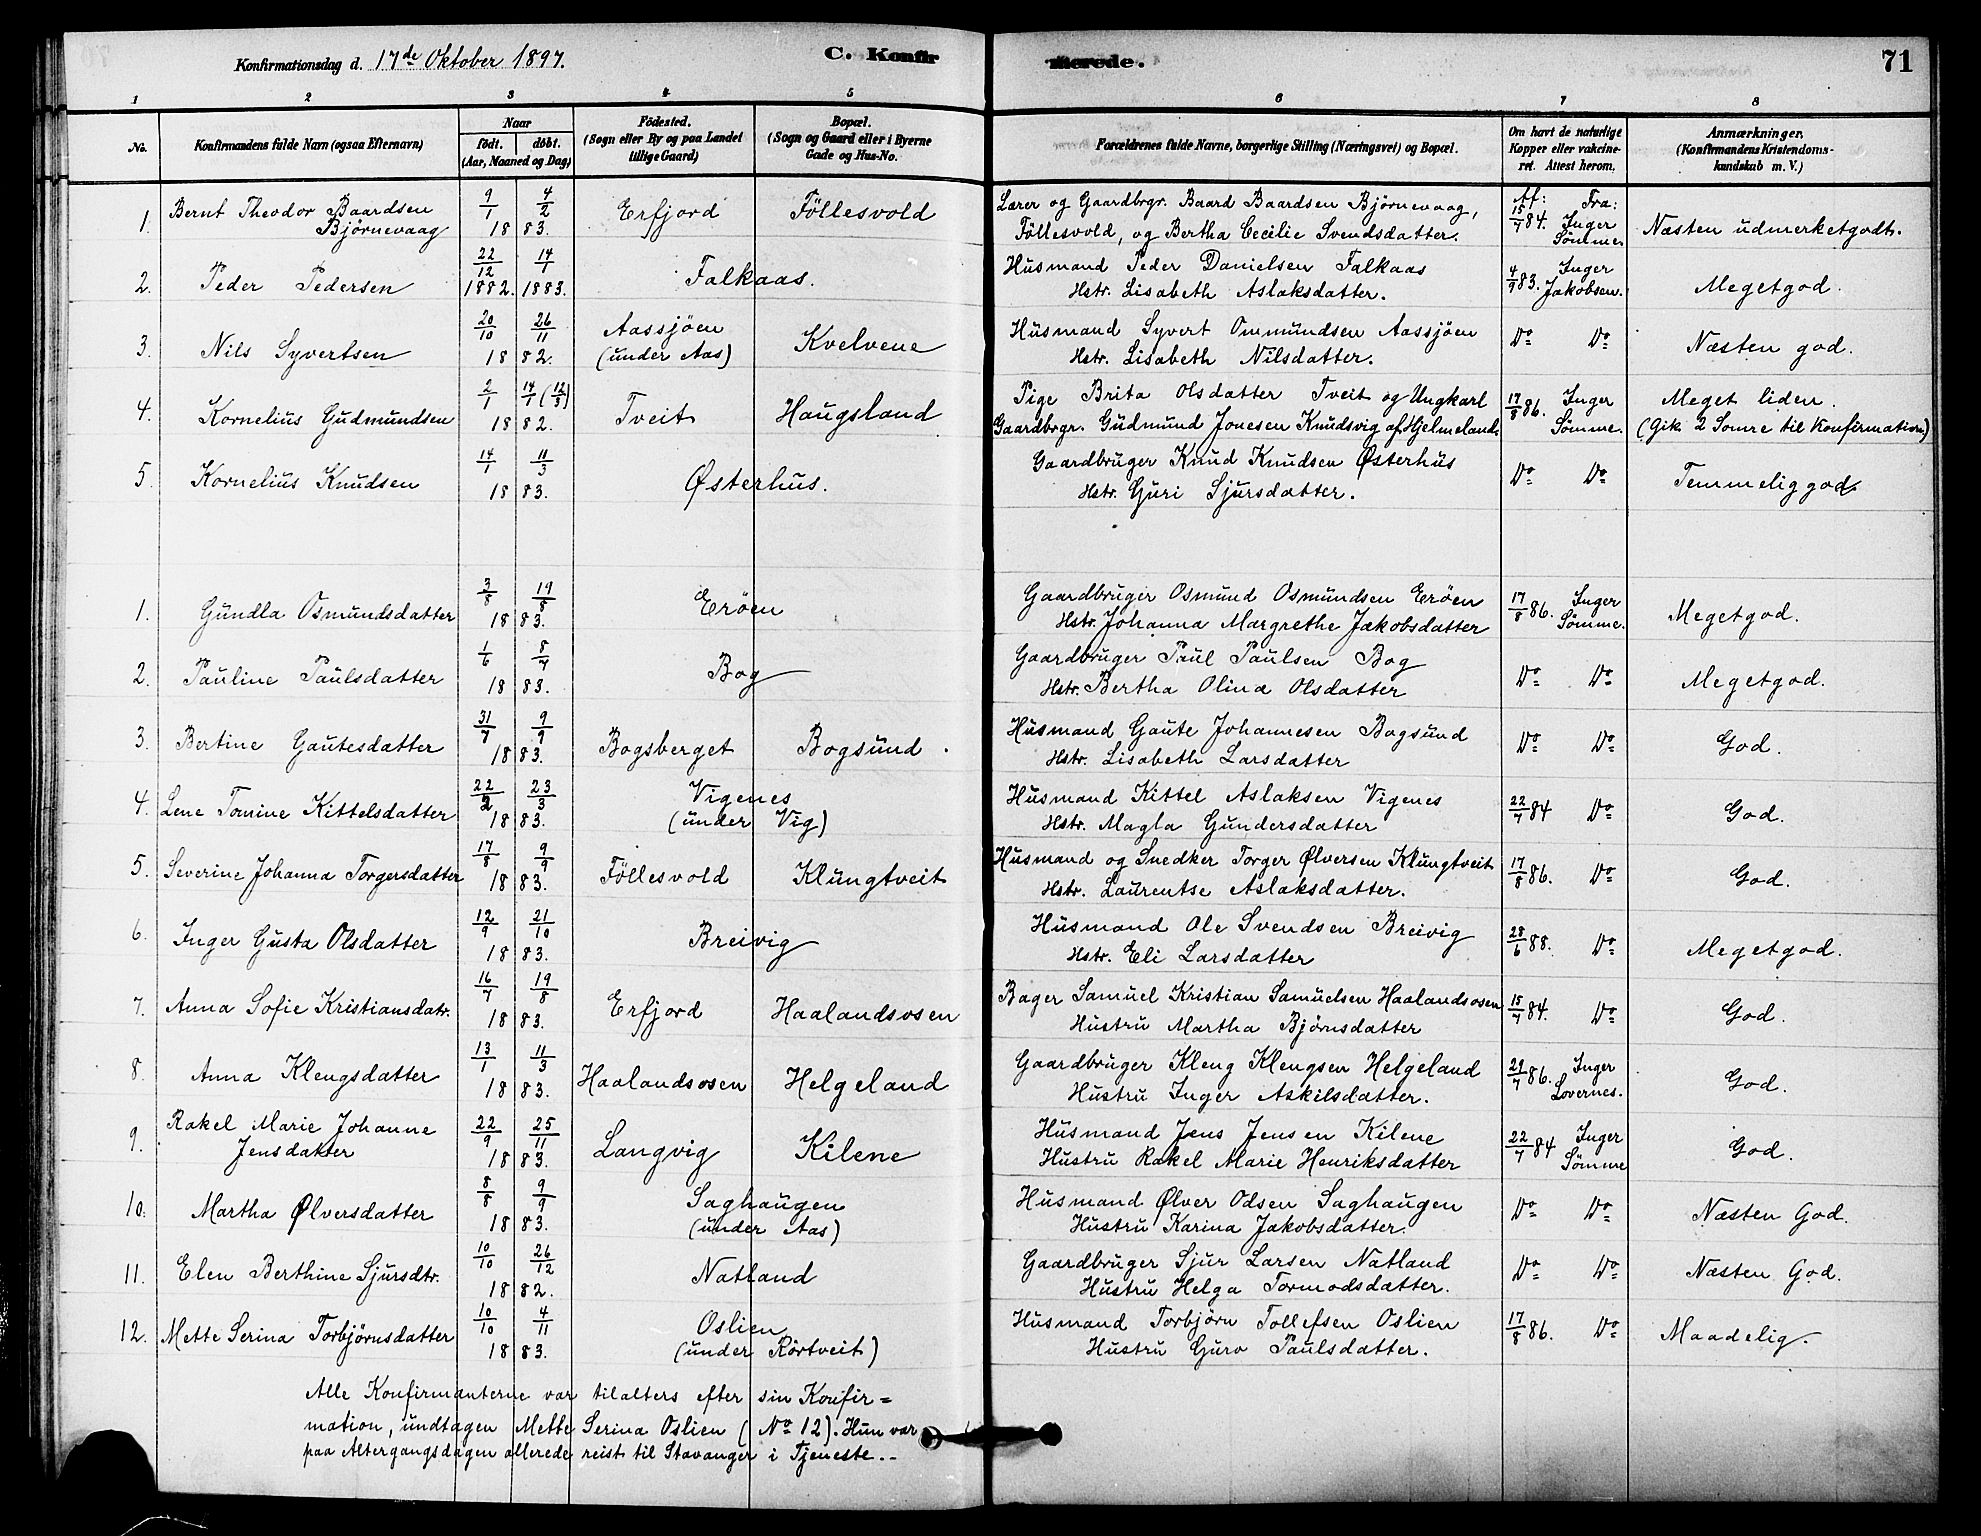 Konfirmationsdag d. 17de Oktober 1897. C. Konfirmerede. 71
1 2 3 4 5 6 7 8
No. Konfirmandens fulde Navn (ogsaa Efternavn) Naar födt. döbt. (Aar, Maaned og Dag) Födested. (Sogn eller By og paa Landet tillige Gaard) Bopæl. (Sogn og Gaard eller i Byerne Gade og Hus-No. Forældrenes fulde Navne, borgerlige Stilling (Næringsvei) og Bopæl. Om havt de naturlige Kopper eller vakcineret. Attest herom. Anmærkninger, (Konfirmandens Kristendomskundskab m. V.)
1. Bernt Theodor Baardsen Bjørnevaag 9/1 4/2 1883. Erfjord Föllesvold Lærer og Gaardbrgr. Baard Baardsen Bjørnevaag, Föllesvold, og Bertha Cecilie Svendsdatter. Af: 15/7 84. Fra: Inger Sømme. Næsten udmerketgodt.
2. Peder Pedersen 22/12 1882. 14/1 1883. Falkaas. Husmand Peder Danielsen Falkaas Hstr. Lisabeth Aslaksdatter. 4/9 83. Inger Jakobsen. Megetgod.
3. Nils Syvertsen 20/10 26/11 1882. Aassjöen (under Aas) Kvelvene Husmand Syvert Ommundsen Aassjöen Hstr. Lisabeth Nilsdatter. Do Do Næsten god.
4. Kornelius Gudmundsen 2/1 14/1 (12/3) 1882. Tveit Haugsland Pige Brita Olsdatter Tveit og Ungkarl Gaardbrgr. Gudmund Jonesen Knudsvig af Hjelmeland. 17/8 86. Inger Sømme. Meget liden. (Gik 2 Somre til Konfirmation)
5. Kornelius Knudsen 14/1 11/3 1883. Østerhus. Gaardbruger Knud Knudsen Østerhus Hstr. Guri Sjursdatter. Do Do Temmeliggod.
1. Gundla Osmundsdatter 3/8 19/8 1883. Eröen Gaardbruger Osmund Osmundsen Eröen Hstr. Johanna Margrethe Jakobsdatter 17/8 86. Inger Sømme. Megetgod.
2. Pauline Paulsdatter 1/6 8/7 1883. Bog Gaardbruger Paul Paulsen Bog Hstr. Bertha Olina Olsdatter Do Do Megetgod.
3. Bertine Gautesdatter 31/7 9/9 1883. Bogsberget Bogsund. Husmand Gaute Johannesen Bogsund Hstr. Lisabeth Larsdatter Do Do God.
4. Lene Tomine Kittelsdatter 22/2 23/3 1883. Vigenes (under Vig) Husmand Kittel Aslaksen Vigenes Hstr. Magla Gundersdatter 22/7 84 Do God.
5. Severine Johanna Torgersdatter 17/8 9/9 1883. Föllesvold Klungtveit Husmand og Snedker Torger Ølversen Klungtveit Hstr. Laurentse Aslaksdatter. 17/8 86. Do God.
6. Inger Gusta Olsdatter 12/9 21/10 1883. Breivig Husmand Ole Svendsen Breivig Hstr. Eli Larsdatter 28/6 88. Do Megetgod.
7. Anna Sofie Kristiansdatr. 16/7 19/8 1883. Erfjord Haalandsosen Bager Samuel Kristian Samuelsen Haalandsosen Hustru Martha Bjørnsdatter 15/7 84. Do God.
8. Anna Klengsdatter 13/1 11/3 1883. Haalandsosen Helgeland Gaardbruger Kleng Klengsen Helgeland Hustru Inger Askilsdatter. 29/7 86. Inger Lovernes. God.
9. Rakel Marie Johanne Jensdatter 22/9 25/11 1883. Langvig Kilene Husmand Jens Jensen Kilene Hustru Rakel Marie Henriksdatter 22/7 84 Inger Sømme God.
10. Martha Ølversdatter 8/8 9/9 1883. Saghaugen (under Aas) Husmand Ølver Odsen Saghaugen Hustru Karina Jakobsdatter. Do Do Næsten God.
11. Elen Berthine Sjursdtr. 10/10 26/12 1882. Natland Gaardbruger Sjur Larsen Natland Hustru Helga Tormodsdatter. Do Do Næsten God.
12. Mette Serina Torbjörnsdatter 10/10 4/11 1883. Oslien (under Rörtveit) Husmand Torbjörn Tollefsen Oslien Hustru Guro Paulsdatter. 17/8 86. Do Maadelig.
Alle Konfirmanterne var tilalters efter sin Konfir=
mation, undtagen Mette Serina Oslien (No 12). Hun var
paa Altergangsdagen allerede reist til Stavanger i Tjeneste.